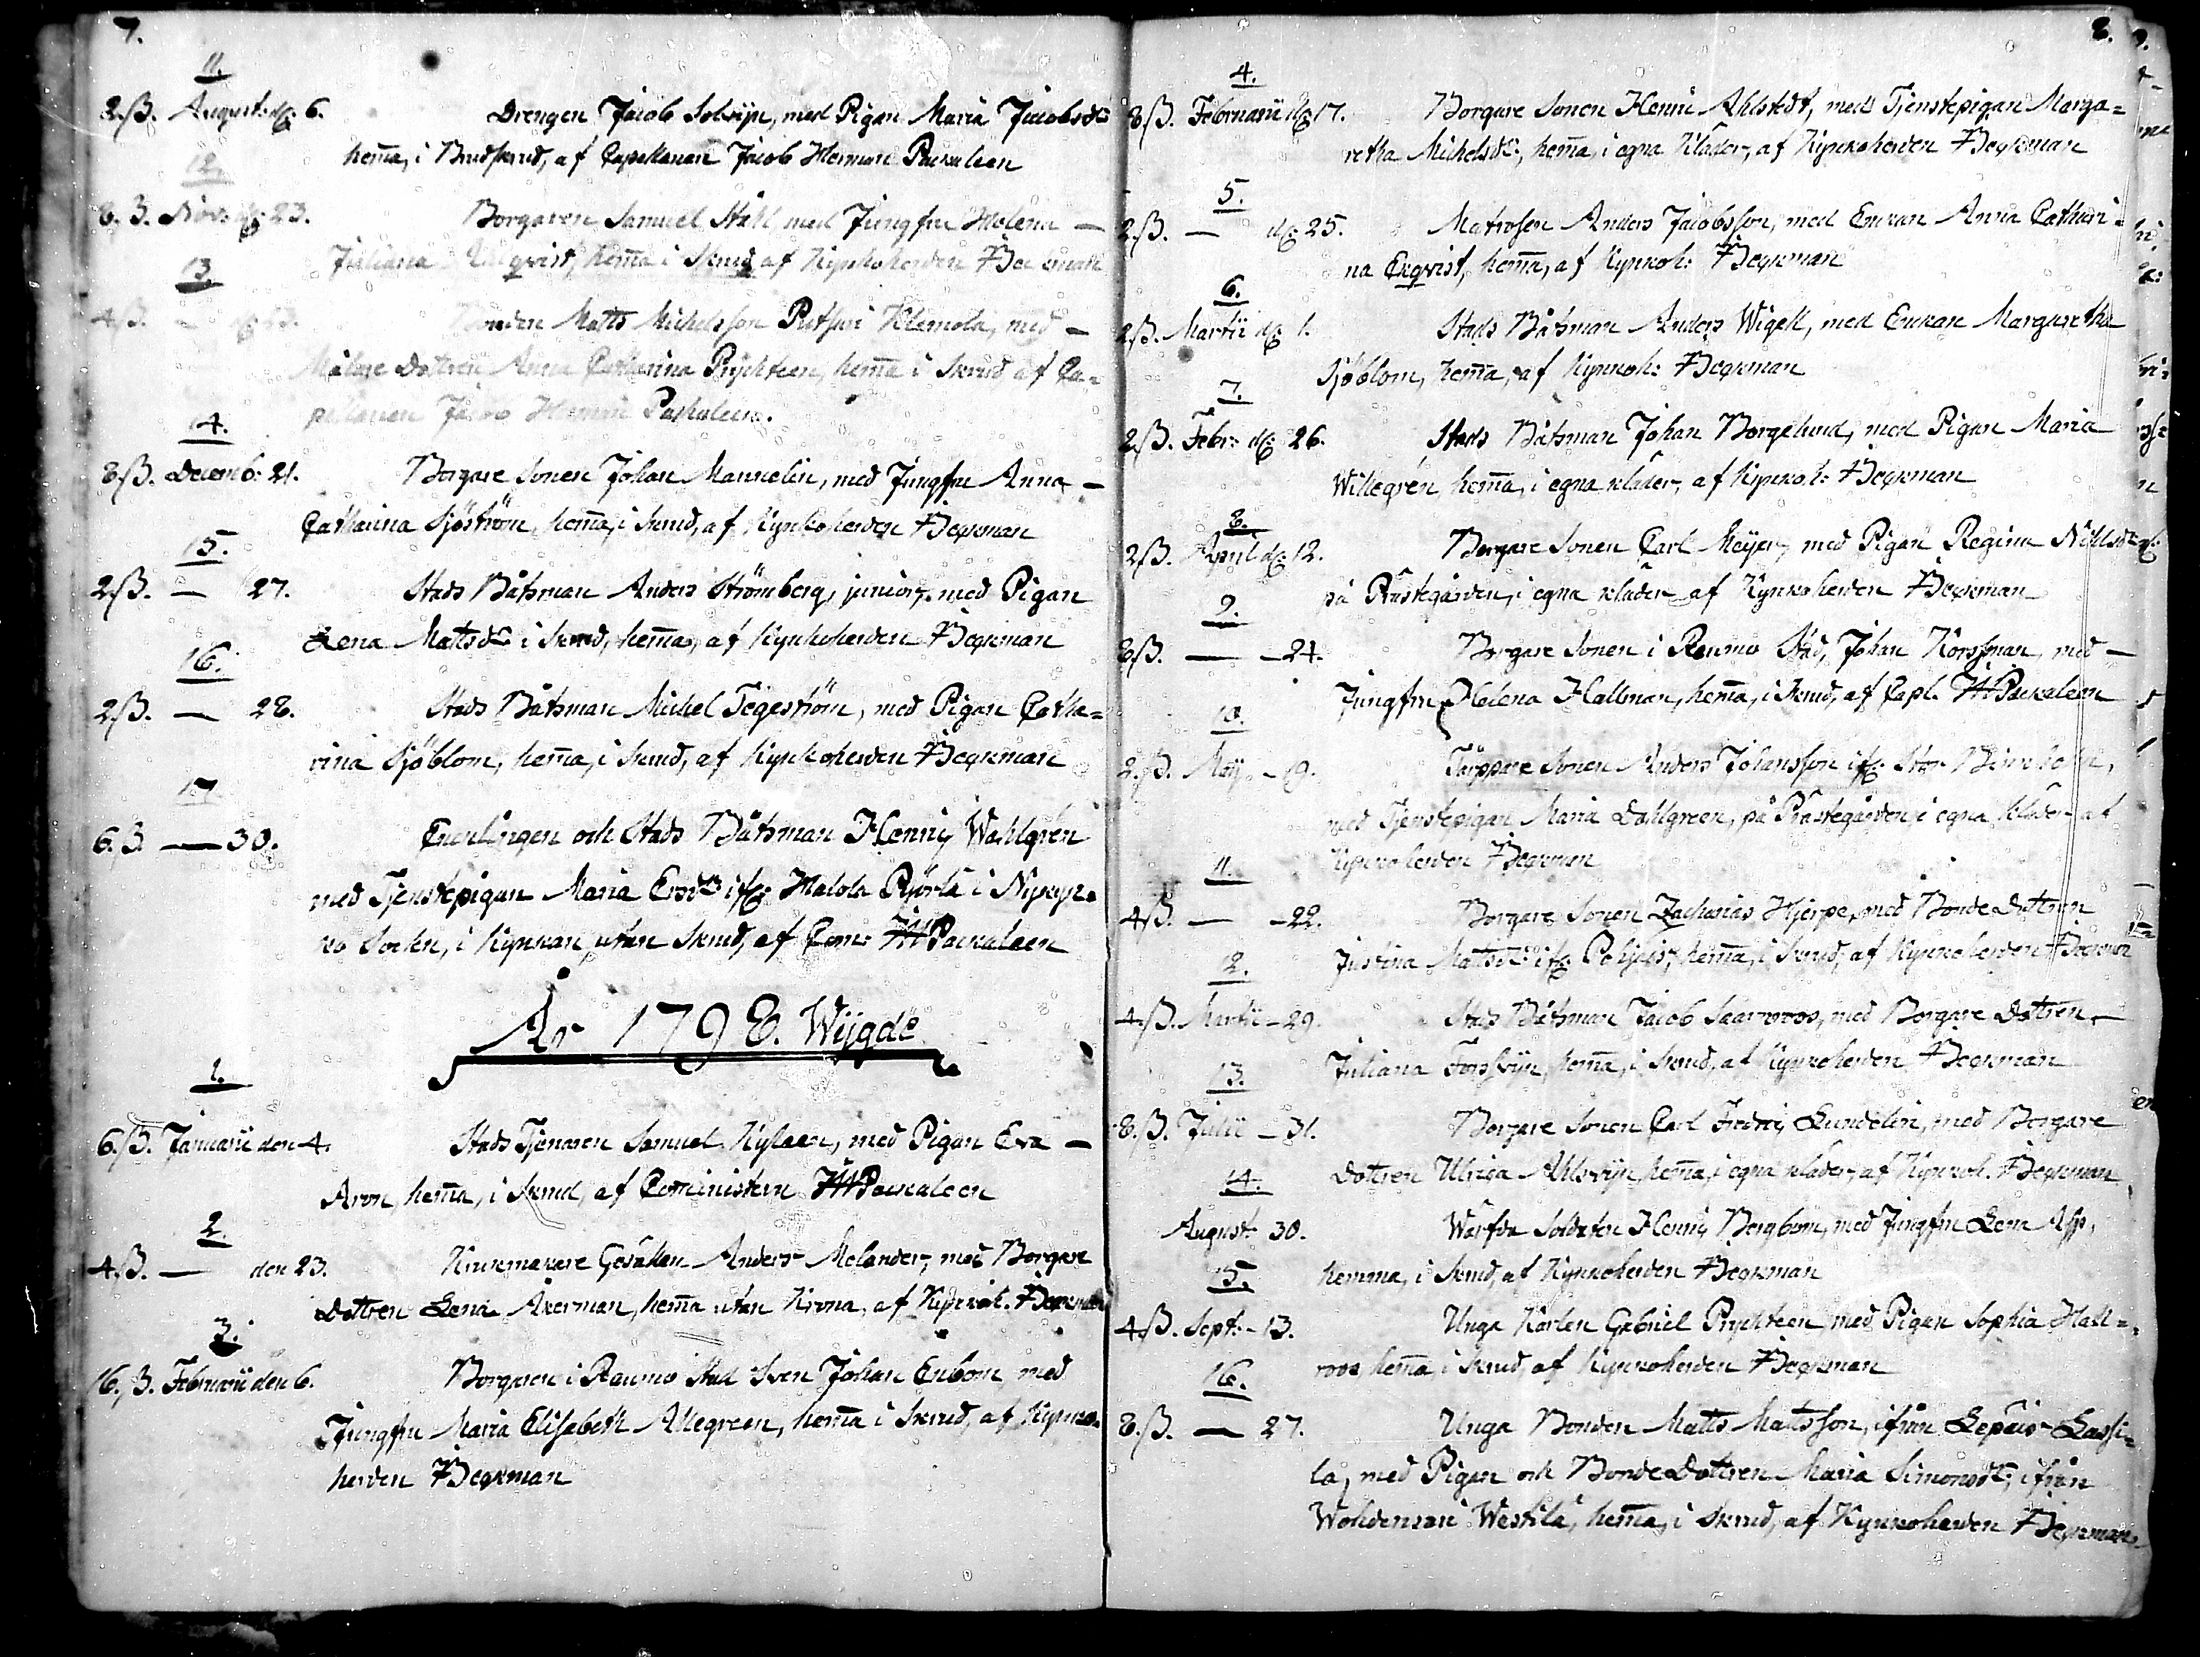 7.
11.
2.ß. August: d: 6. Drengen Jacob Solvijn, med Pigan Maria Jacobsdr
hem̅a, i Brudskrud, af Capellanen Jacob Herman Packaleen
12.
8.ß. Nov: d: 23. Borgaren Samuel Ståhl med Jungfru Helena —
Juliana hem̅a i Skrud af Kyrkoherden FBeckman
13.
4.ß. — Bonden Matts Michelsson Klemola, med —
Målare Dottren Anna Catharina Prychteen, hem̅a i Skrud af Ca=
pellanen Jacob Herman Packaleen.
14.
8.ß. Decemb: 21. Borgare Sonen Johan Mannelin, med Jungfru Anna —
Catharina Sjöström, hem̅a, i Skrud, af Kyrkoherden FBeckman
15.
2.ß. — 27. Stads Båtsman Anders Strömberg, junior, med Pigan
Lena Mattsdr i Skrud, hem̅a, af Kyrkoherden FBeckman
16.
2.ß. — 28. Stads Båtsman Michel Tegeström, med Pigan Catha=
rina Sjöblom, hem̅a, i Skrud, af Kyrkoherden FBeckman
17
6.ß. — 30. Enklingen och Stads Båtsman Henric Wahlgren
med Tjenstepigan Maria Ersdr ifr: Halola i Nykyr=
ko Sockn, i Kyrkan, utan Skrud, af Com: JHPackaleen
År 1798. Wijgde
1.
6.ß. Januarii den 4. Stads Tjenaren Samuel Kylaen, med Pigan Eva —
Aron, hem̅a, i Skrud, af Com̅inistern JHPackaleen
2.
4.ß. — den 23. Krukmakare Gesällen Anders Melander, med Borgare
Dottren Lena Akerman, hem̅a utan Krona, af Kyrkoh. FBeckman
3.
16.ß. Februarii den 6. Borgaren i Raumo Stad Sven Johan Enbom, med
Jungfru Maria Elisabeth Allegreen, hem̅a i Skrud, af Kyrko=
herden FBeckman
8.
4.
8.ß. Februarii d: 17. Borgare Sonen Henric Ahlstedt, med Tjenstepigan Marga=
retha Michelsdr, hem̅a, i egna Kläder, af Kyrkoherden FBeckman
5.
2.ß. — d: 25. Matrosen Anders Jacobsson, med Enkan Anna Cathari=
na Ekqvist, hem̅a, af Kyrkoh: FBeckman
6.
2.ß. Martii d: 1. Stads Båtsman Anders Wigell, med Enkan Margaretha
Sjöblom, hem̅a, af Kyrkoh: FBeckman
7.
2.ß. Febr: d: 26. Stads Båtsman Johan Borgelund, med Pigan Maria
Willegren, hem̅a, i egna kläder, af Kyrkoh: FBeckman
8.
2.ß. April d: 12. Borgare Sonen Carl Meijer, med Pigan Regina Nihlsdr
på Prästegården, i egna kläder af Kyrkoherden FBeckman
9.
8.ß. — 24. Borgare Sonen i Raumo Stad, Johan Korssman, med —
Jungfru Helena Hallman, hem̅a, i Skrud, af Capl. JHPackaleen
10.
2.ß. Maij — 19. Torppare Sonen Anders Johansson ifr: Stor
med Tjenstepigan Maria Dahlgreen, på Prästegården, i egna kläder af
Kyrkoherden FBeckman
11.
4.ß. — 22. Borgare Sonen Zacharias Hjerpe, med Bonde Dottren
Justina Mattsdr ifr: hem̅a, i Skrud, af Kyrkoherden FBeckman
12.
4.ß. Martii — 29. Stads Båtsman Jacob Saarroos, med Borgare Dottren —
Juliana Forssvijn, hem̅a, i Skrud, af Kyrkoherden FBeckman
13.
8.ß. Julii — 31. Borgare Sonen Carl Fredric Lundelin, med Borgare
Dottren Ulrica Ahlsvijn, hem̅a, i egna kläder, af Kyrkoh. FBeckman
14.
August 30. Wärfda Soldaten Henric Bergbom, med Jungfru Lena Asp,
hemma, i Skrud, af Kyrkoherden FBeckman
15.
4.ß. Sept: — 13. Unga Karlen Gabriel Prychteen, med Pigan Sophia Hall=
roos, hem̅a i Skrud, af Kyrkoherden FBeckman
16.
8.ß. — 27. Unga Bonden Matts Mattsson, ifrån Lepäis Lassi=
la, med Pigan och Bonde Dottren Maria Simonsdr, ifrån
Wohdensari Westilä, hem̅a, i Skrud, af Kyrkoherden FBeckman